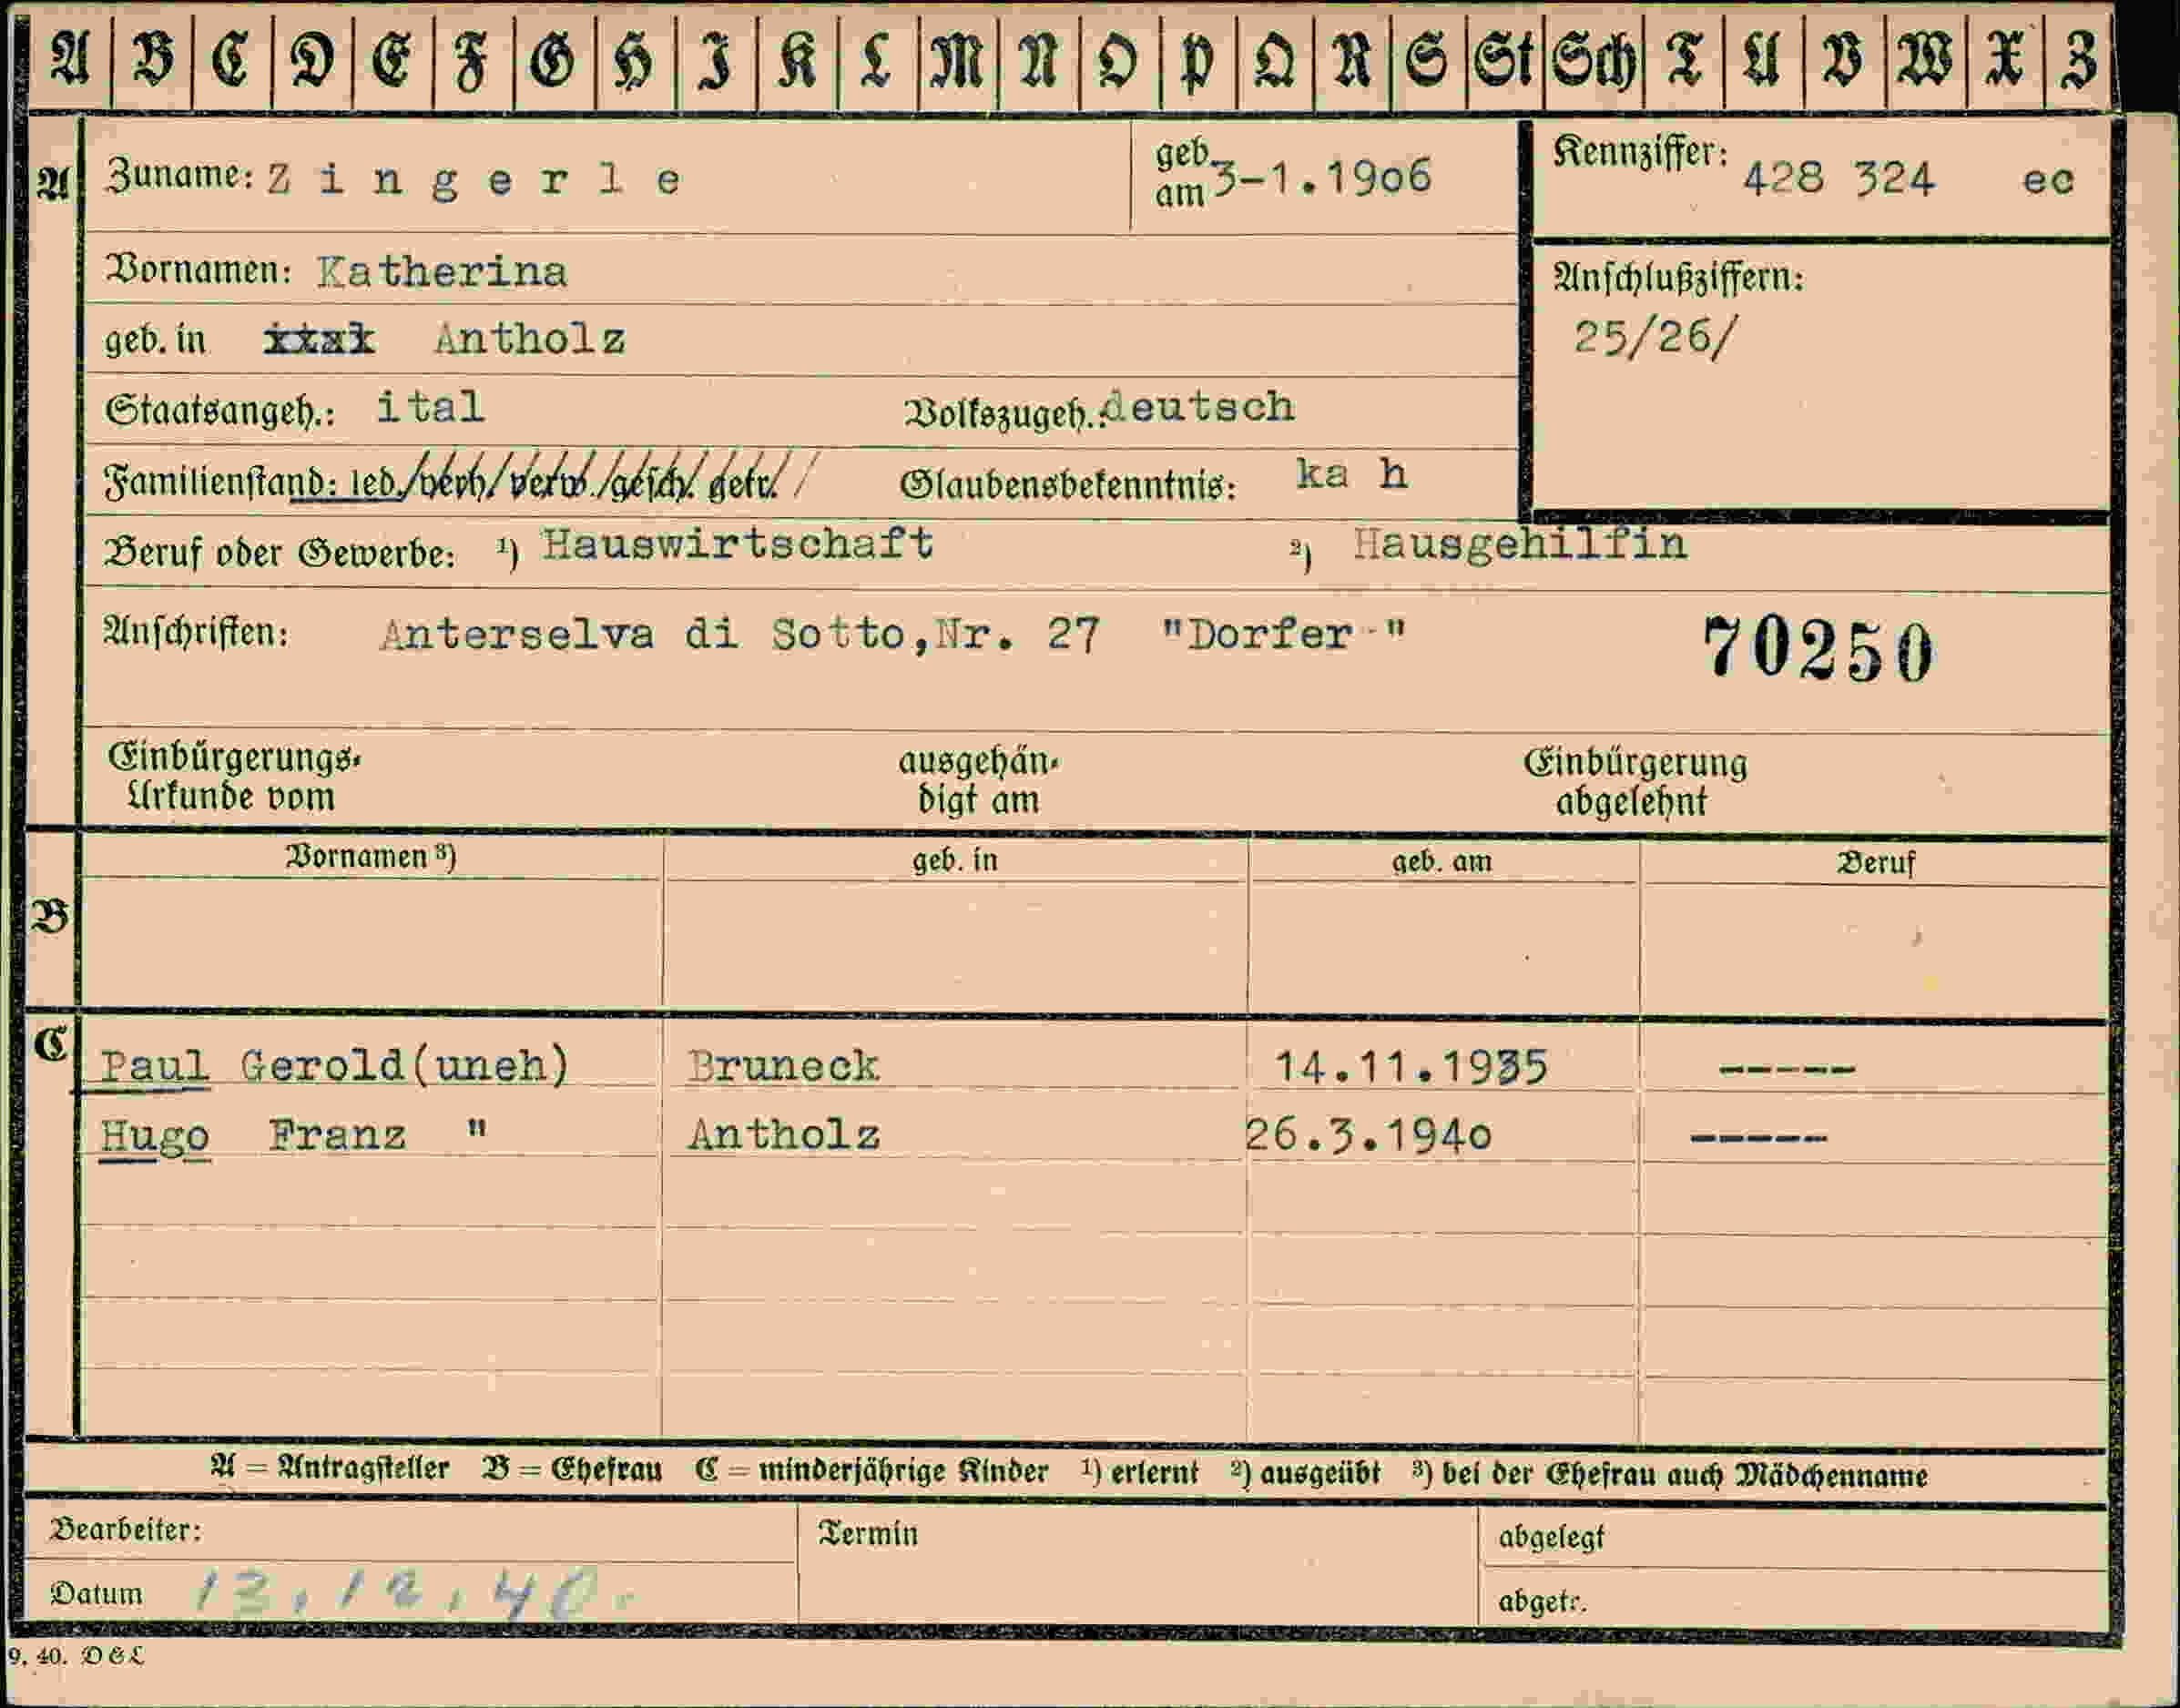 A B C D E F G H I K L M N O P Q R S St Sch T U V W X Z
A Zuname: Zingerle geb. am 3-1.1906 Kennziffer: 428 324 ec
Vornamen: Katherina
Anschlußziffern:
geb. in Antholz 25/26/
Staatsangeh.: ital Volkszugeh.: deutsch
Familienstand: led./verh/verw./gesch/. getr./ Glaubensbekenntnis: ka h
Beruf oder Gewerbe: ¹) Hauswirtschaft ²) Hausgehilfin
Anschriften: Anterselva di Sotto,Nr. 27 "Dorfer-" 70250
Einbürgerungs- ausgehän- Einbürgerung
Urkunde vom digt am abgelehnt
Vornamen ³) geb. in geb. am Beruf
B
C Paul Gerold(uneh) Bruneck 14.11.1935 -----
Hugo Franz " Antholz 26.3.1940 -----
A = Antragsteller B = Ehefrau C = minderjährige Kinder ¹) erlernt ²) ausgeübt ³) bei der Ehefrau auch Mädchenname
Bearbeiter: Termin abgelegt
Datum 13.12.40. abgetr.
9. 40. DEL